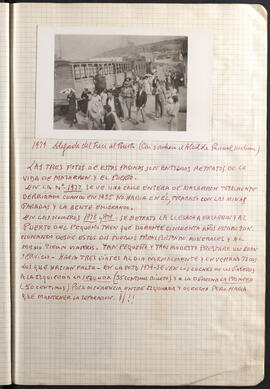 1979 Llegada del Tren al Puerto
LAS TRES FOTOS DE ESTAS PAGINAS SON ANTIGUOS RETRATOS DE LA
VIDA DE MAZARRON Y EL PUERTO.
EN LA Nº 1977. SE VE UNA CALLE ENTERA DE MAZARRON TOTALMENTE
DERRIBADA CUANDO EN 1925 NO HABIA EN EL TRABAJO CON LAS MINAS
PARADAS Y LA GENTE EMIGRANDO.
EN LOS NUMEROS 1978 1979. SE RETRATA LA LLEGADA A MAZARRON Y AL
PUERTO DEL PEQUEÑO TREN QUE DURANTE CINCUENTA AÑOS ESTUVO FUN-
CIONANDO DESDE ESTOS DOS PUEBLOS TRANSPORTANDO MINERALES Y AL
MISMO TIEMPO VIAJEROS. TAN PEQUEÑO Y TAN MODESTO PRESTABA UN BUEN
SERVICIO - HACIA TRES VIAJES AL DIA NORMALMENTE Y EN VERANO TODOS
LOS QUE HACIAN FALTA - EN LA FOTO 1979 - SE VEN LOS COCHES DE LOS VIAJEROS
A LA IZQUIERDA LA SEGUNDA (35 CENTIMOS BILLETE) Y A LA DERECHA LA PRIMERA
(50 CENTIMOS) POCA DIFERENCIA ENTRE IZQUIERDA Y DERECHA PERO HABIA
QUE MANTENER LA SEPARACION. !! !!